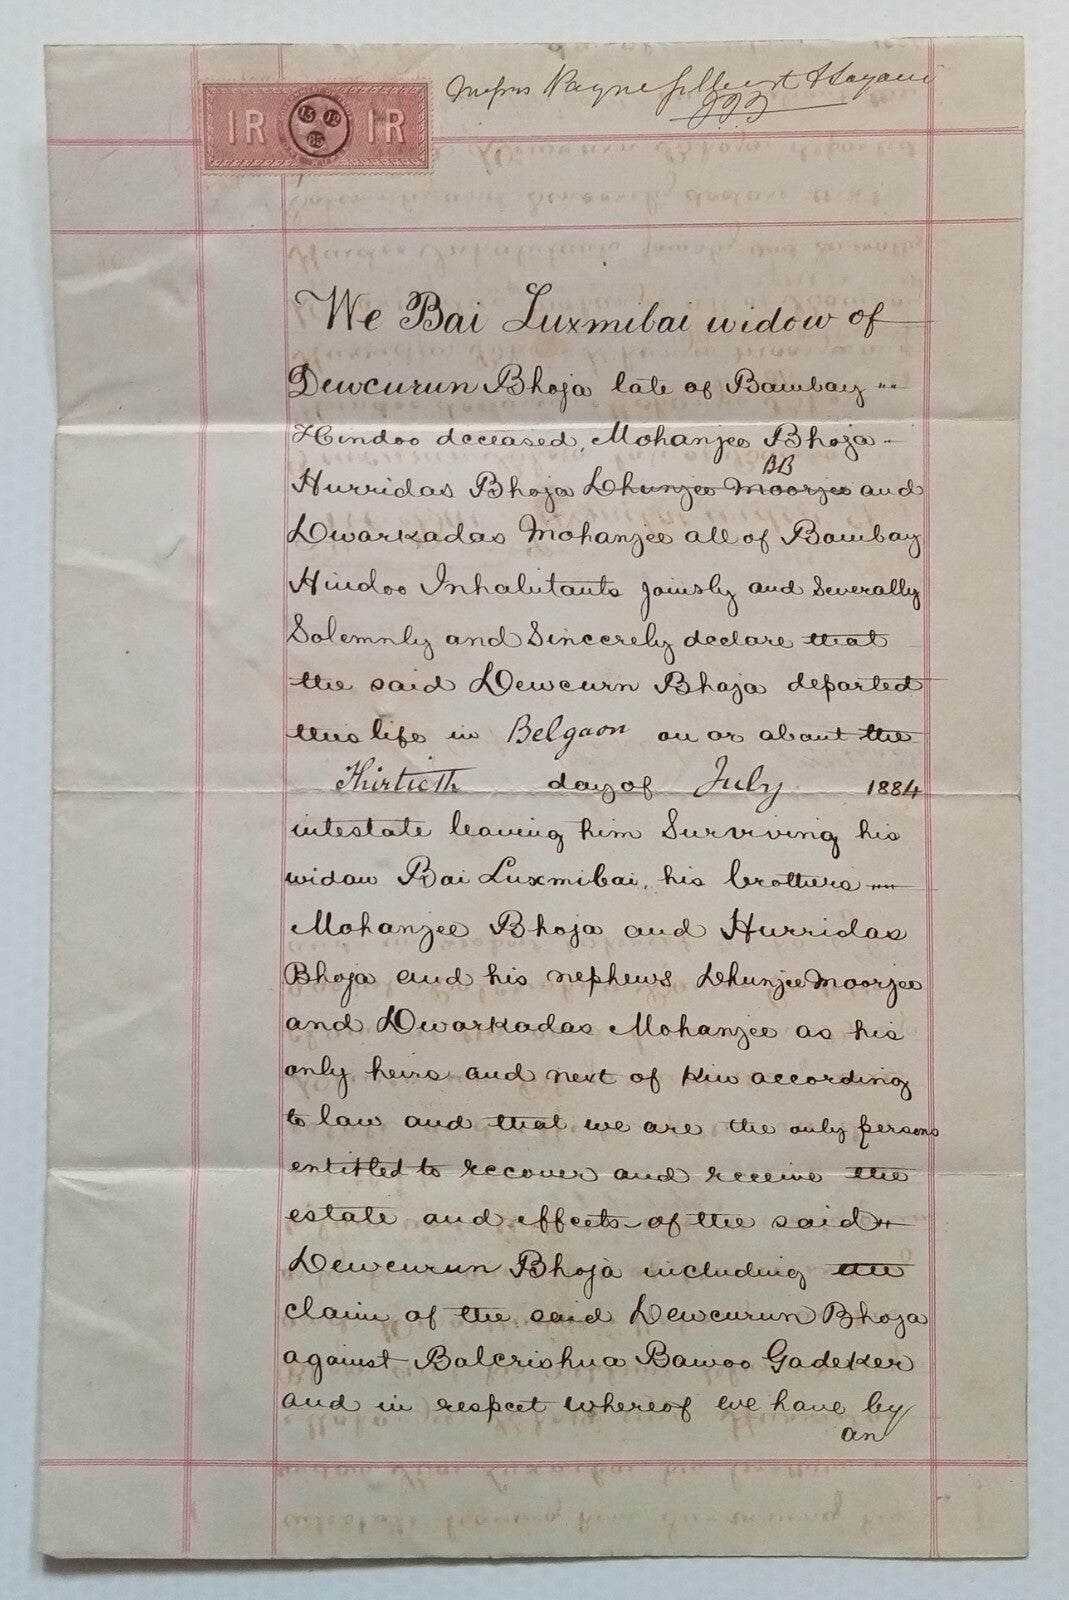 1R 1R
Messrs Payne Gilbert & Sayani
We Bai Luxmibai widow of
Dewcurun Bhoja late of Bombay
Hindoo deceased, Mohanjee Bhoja
BB
Hurridas Bhoja Dhunjee Moorjee and
Dwarkadas Mohanjee all of Bombay
Hindoo Inhabitants jointly and Severally
Solemnly and Sincerely declare that
the said Dewcurn Bhoja departed
this life in Belgaon on or about the
Thirtieth day of July 1884
intestate leaving him Surviving his
widow Bai Luxmibai, his brothers
Mohanjee Bhoja and Hurridas
Bhoja and his nephews Dhunjee Moorjee
and Dwarkadas Mohanjee as his
only heirs and next of Kin according
to law and that we are the only persons
entitled to recover and receive the
estate and effects of the said
Dewcurun Bhoja including the
claim of the said Dewcurun Bhoja
against Balcrishna Bawoo Gadeker
and in respect whereof we have by
an